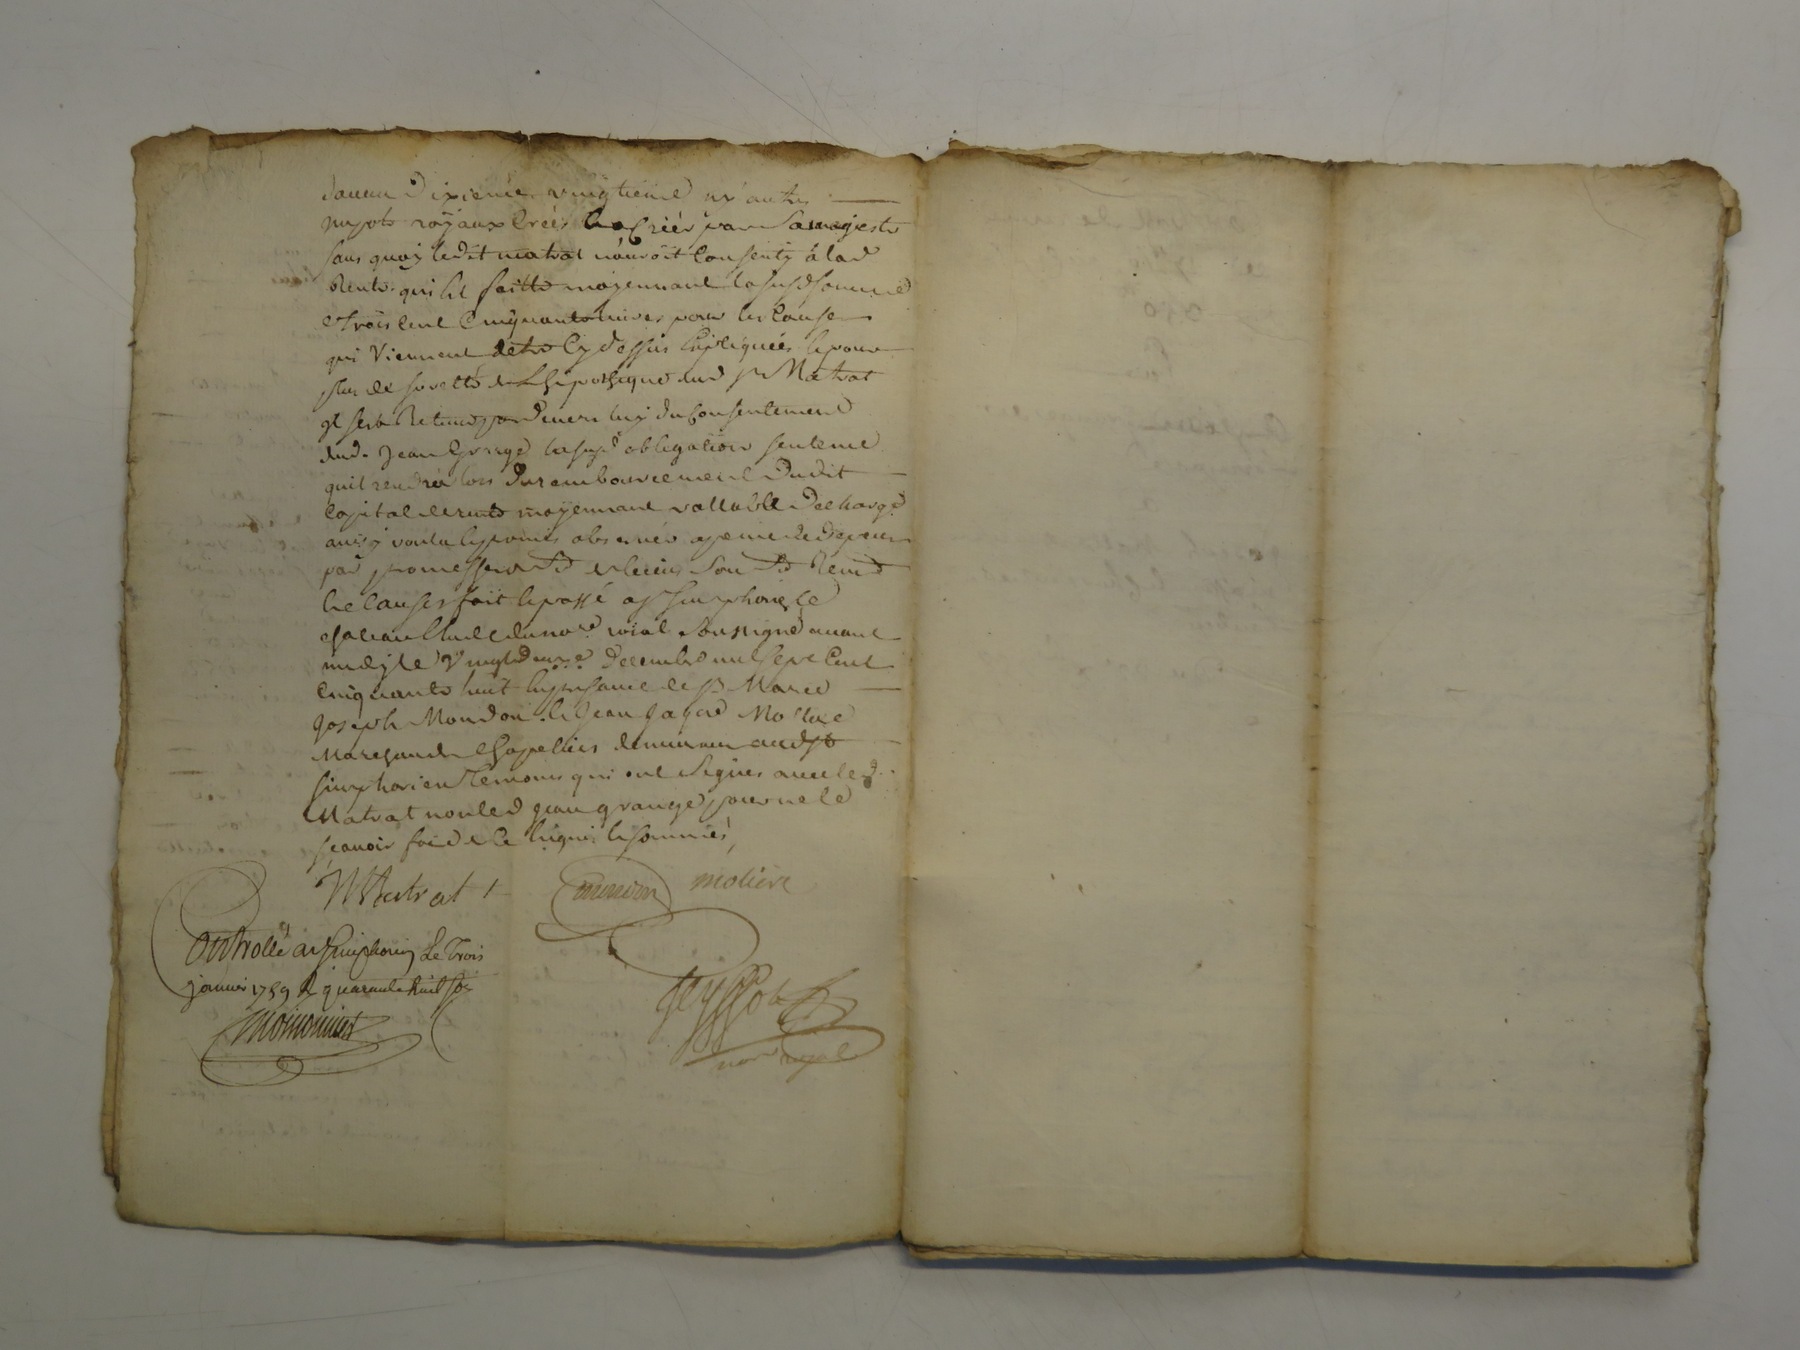 daucun dixieme vingtieme ny autres
impots royaux créés et a créér par Sa majesté
sans quoy ledit matrat nauroit consenty à lad
Rente qui est faitte moyennant la susd somme
de trois cent cinquante livres pour les causes
qui viennent detre cy dessus expliquées et pour
plus de sureté de Lhipothegue dud sr Matrat
il sera Retenu par devers luy du consentement
dud. Jean Grange la susd obligation sentence
quil rendra lors du remboursement dudit
capital de rente moyennant vallable decharge
ainsy voulu et promis observér a peine de depens
par promesses
et clauses fait et passé a st simphorien le
chateau Etude du nore roial soussigné avant
midy le Vingt deuxe decembre mil sept cent
cinquante huit en presence de sr Marcé
Joseph Mondon et Jean Moliere
Marchands chapelliers demeurant aud st
simphorien temoins qui ont signés avec led
Matrat non led Jean grange pour ne le
scavoir fait de ce enquis et sommés
Matrat
mondon moliere
Controllé a st Simphorien Le trois
janvier 1759 R quarante huit sols
nore royal